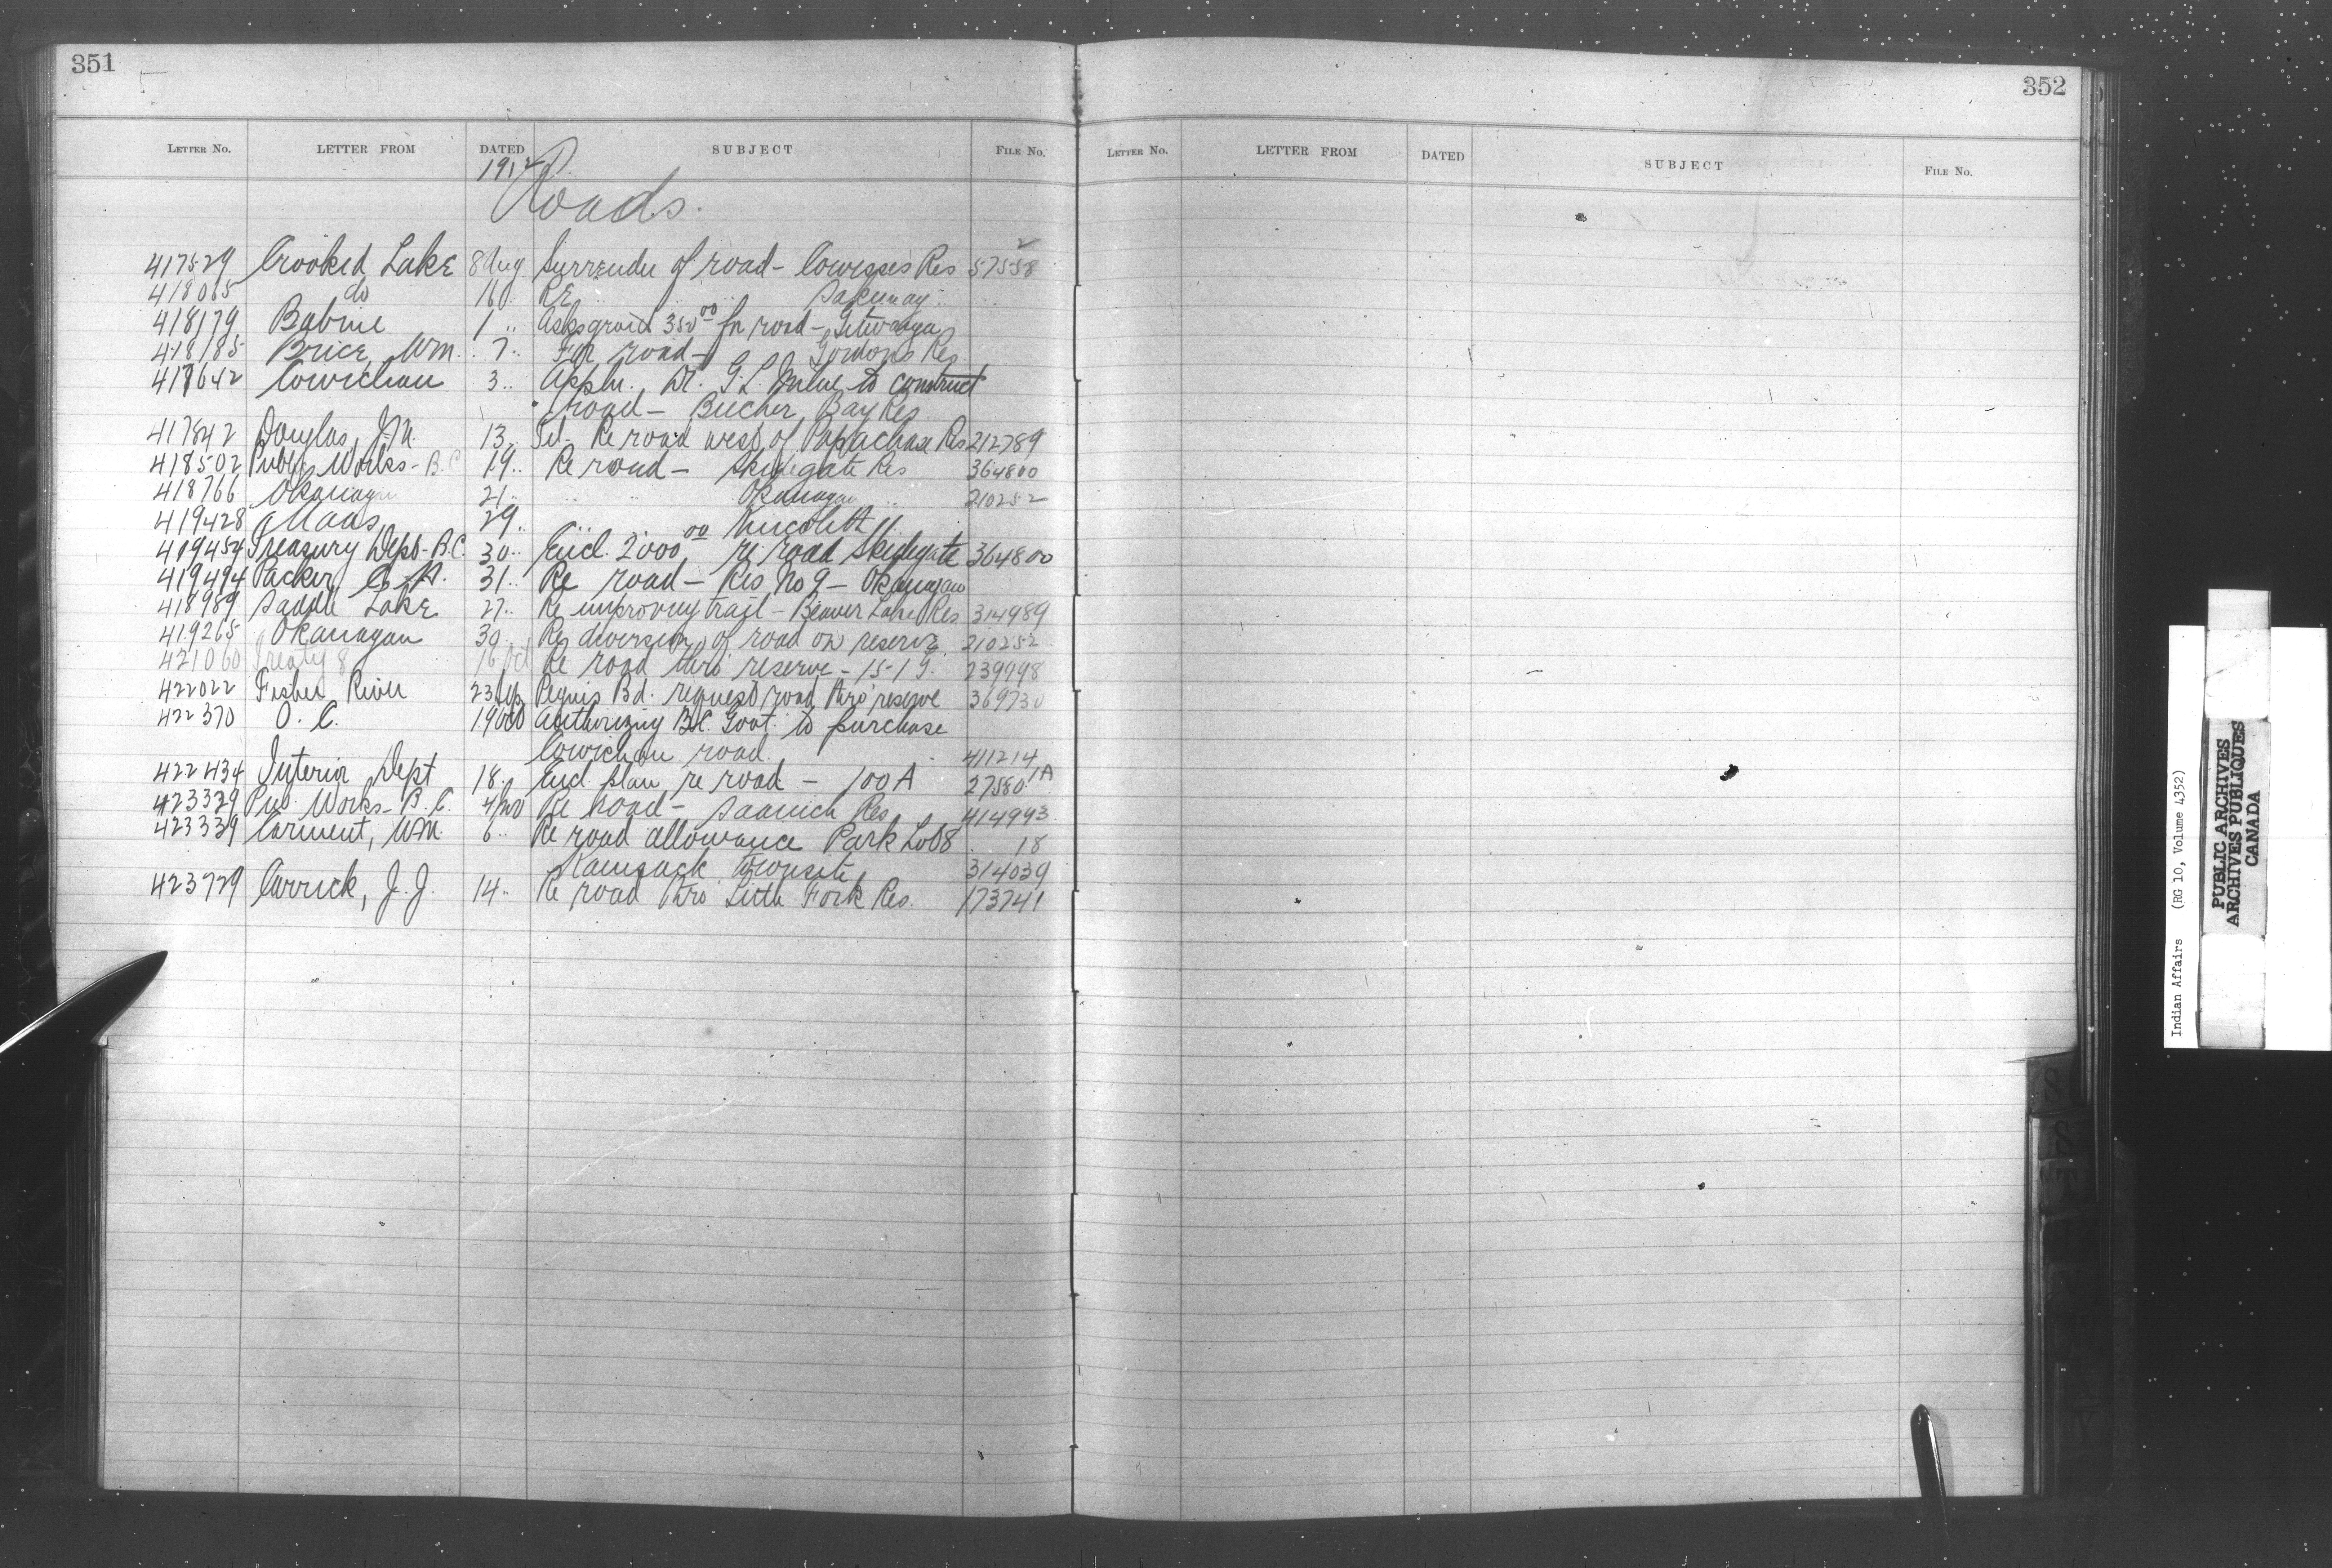 351
LETTER No. LETTER FROM DATED SUBJECT FILE No.
1912
Roads.
417529 Crooked Lake 8 Aug Surrender of road - Cowesses Res 57558 2
418065 do 16 .. Re .. .. .. Sakimay .. ..
418179 Babine 1 .. Asks grant 350 00 for road - Gitwanga
418185 Brice, Wm. 7 .. For road - Gordons Res
417642 Cowichan 3 .. Appln. Dr. G. L. Milne to construct
road - Becher Bay Res
417842 Douglas, J. M. 13 .. Tel - Re road west of Papachase Res 212789
418502 Public Works - B.C. 19 .. Re road - Skidegate Res 364800
418766 Okanagan 21 .. .. .. Okanagan .. 210252
419428 29 ..
419454 Treasury Dept - B.C. 30 .. Encl. 2000 00 re road Skidegate 364800
419494 Packer, 31 .. Re road - Res No 9 - Okanagan
418989 Saddle Lake 27 .. Re improving trail - Beaver Lake Res 314989
419265 Okanagan 30 .. Re diversion of road on reserve 210252
421060 Treaty 8 16 Oct Re road thro' reserve - 239998
422022 Fisher River 23 Sep Peguis Bd. request road thro' reserve 369730
422370 O. C. 19 Oct Authorizing B.C. Govt. to purchase
Cowichan road 411214
422434 Interior Dept 18 .. Encl. plan re road - 100 A 27580 1A
423329 Pub. Works - B.C. 4 Nov Re road - Saanich Res 414993
423339 Carment, Wm. 6 .. Re road allowance Park Lot 8 18
Kamsack Townsite 314039
423729 Carrick, J. J. 14 .. Re road thro' Little Fork Res. 173741
352
LETTER No. LETTER FROM DATED SUBJECT FILE No.
Indian Affairs (RG 10, Volume 4352)
PUBLIC ARCHIVES
ARCHIVES PUBLIQUES
CANADA